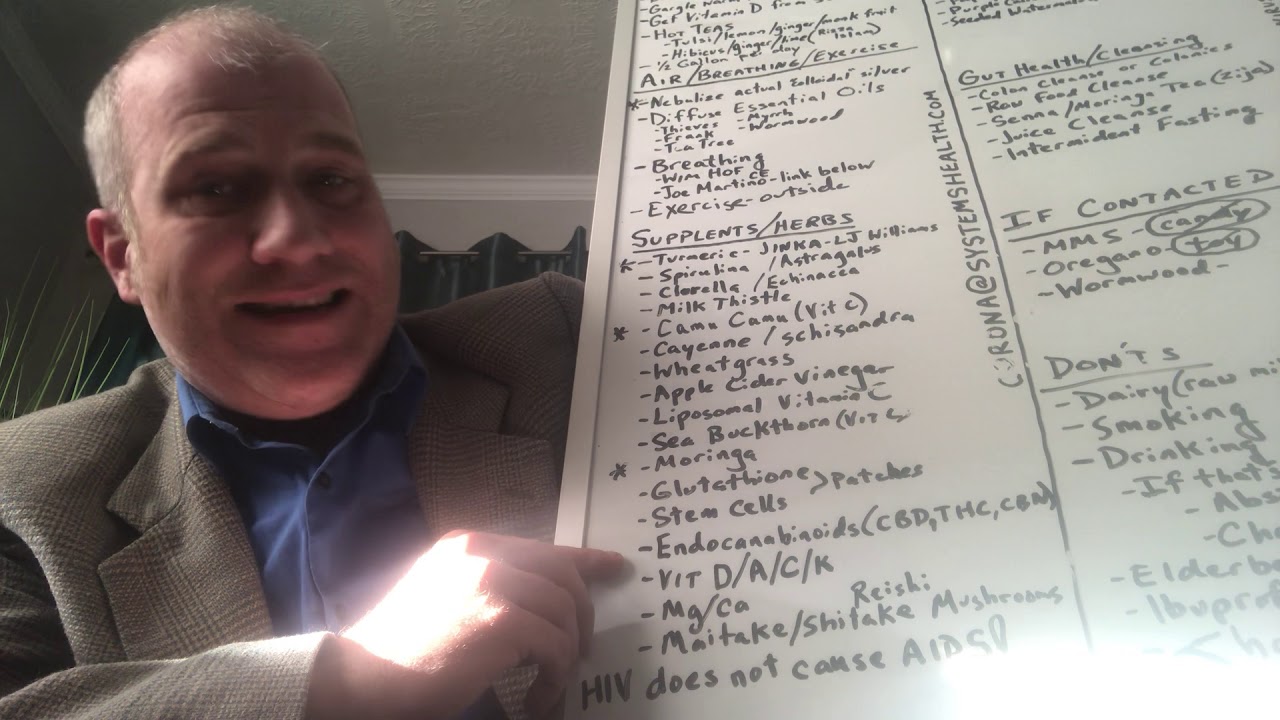 - Gargle Warm
- Get Vitamin D from
- Hot Teas
- Tulsi/lemon/ginger/monk fruit
- Hibicus/ginger/lime
- 1/2 Gallon per day
AIR/BREATHING/Exercise
*- Nebulize actual colloidal silver
- Diffuse Essential Oils
- Thieves - Myrrh
- Frank - Wormwood
- Tea Tree
- Breathing
- WIM HOF CE
- Joe Martino - link below
- Exercise - outside
SUPPLENTS/HERBS
*- Turmeric - JINKA - LJ Williams
- Spirulina /Astragalus
- Clorella /Echinacea
- Milk Thistle
* - Camu Camu (Vit C)
- Cayenne /schisandra
- Wheatgrass
- Apple Cider Vinegar
- Liposomal Vitamin C
- Sea Buckthorn (Vit C)
* - Moringa
- Glutathione > Patches
- Stem Cells
- Endocanabinoids (CBD, THC, CBN)
- VIT D/A/C/K
- Mg/Ca
Reishi
- Maitake/Shitake Mushrooms
HIV does not cause AIDS!
CORONA@SYSTEMSHEALTH.COM
- Purple
- Seeded Watermelon
Gut Health/Cleansing
- Colon Cleanse or Colonics
- Raw Food Cleanse
- Senna/Moringa Tea (Zija)
- Juice Cleanse
- Intermident Fasting
IF CONTACTED
- MMS - candy
- Oregano - toy
- Wormwood -
DON'TS
- Dairy (raw
- Smoking
- Drinking
- If that's
- Elderb
- Ibuprof